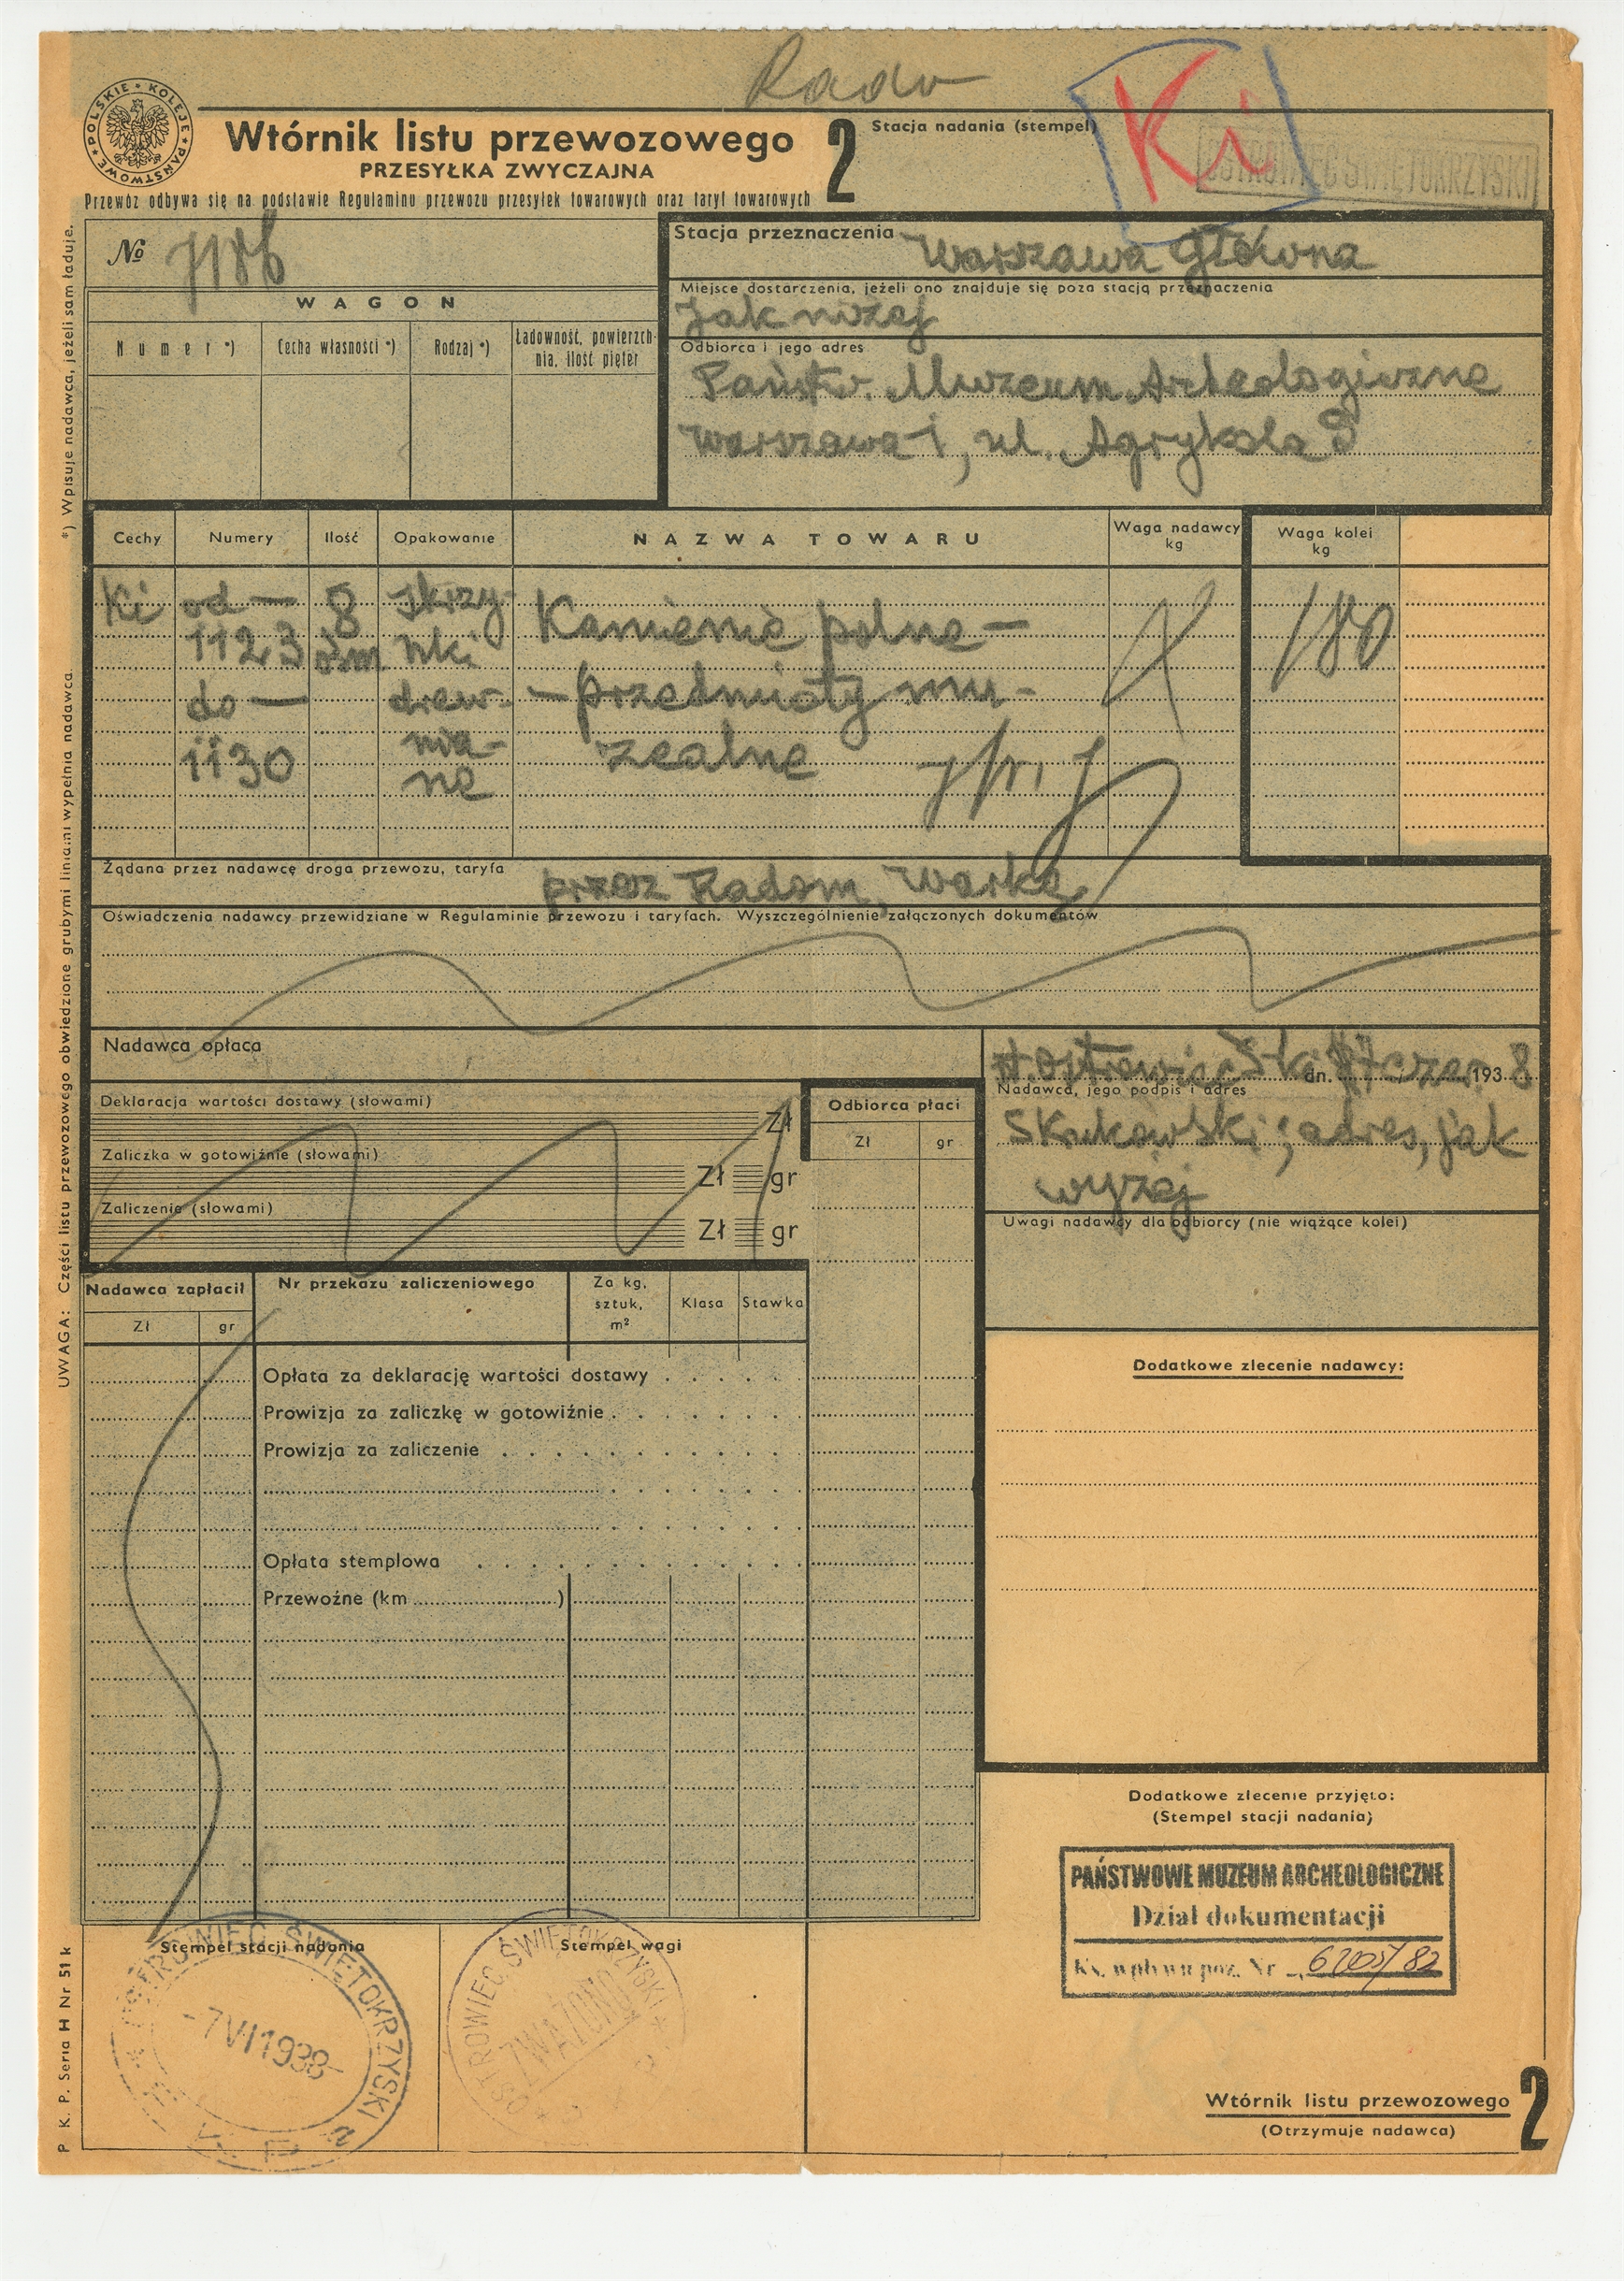 Rado
Ki
POLSKIE KOLEJE PAŃSTWOWE
Wtórnik listu przewozowego
PRZESYŁKA ZWYCZAJNA
Przewóz odbywa się na podstawie Regulaminu przewozu przesyłek towarowych oraz taryf towarowych
2
Stacja nadania (stempel)
OSTROWIEC ŚWIĘTOKRZYSKI
№
Stacja przeznaczenia Warszawa Główna
Miejsce dostarczenia, jeżeli ono znajduje się poza stacją przeznaczenia
jak niżej
Odbiorca i jego adres
Państw. Muzeum Archeologiczne
Warszawa 1, ul. Agrykola 9
WAGON
Numer *) Cecha własności *) Rodzaj *) Ładowność, powierzchnia, ilość pięter
*) Wpisuje nadawca, jeżeli sam ładuje.
Cechy Numery Ilość Opakowanie NAZWA TOWARU Waga nadawcy kg Waga kolei kg
Ki od — 8 skrzy- Kamienie polne — 180
1123 ośm nki
do — drew- — przedmioty mu-
1130 nia- zealne
ne
Żądana przez nadawcę droga przewozu, taryfa przez Radom, Warkę
Oświadczenia nadawcy przewidziane w Regulaminie przewozu i taryfach. Wyszczególnienie załączonych dokumentów
Nadawca opłaca
Deklaracja wartości dostawy (słowami)
Zł
Zaliczka w gotowiźnie (słowami)
Zł gr
Zaliczenie (słowami)
Zł gr
Odbiorca płaci
Zł gr
dn. 7 czer. 1938
Nadawca, jego podpis i adres
adres, jak
wyżej
Uwagi nadawcy dla odbiorcy (nie wiążące kolei)
Nadawca zapłacił Nr przekazu zaliczeniowego Za kg, sztuk, m² Klasa Stawka
Zł gr
Opłata za deklarację wartości dostawy
Prowizja za zaliczkę w gotowiźnie
Prowizja za zaliczenie
Opłata stemplowa
Przewoźne (km )
Dodatkowe zlecenie nadawcy:
Dodatkowe zlecenie przyjęto:
(Stempel stacji nadania)
PAŃSTWOWE MUZEUM ARCHEOLOGICZNE
Dział dokumentacji
Ks. wpływu poz. Nr 6205/82
Stempel stacji nadania
OSTROWIEC ŚWIĘTOKRZYSKI
-7 VI 1938
P K P
Stempel wagi
OSTROWIEC ŚWIĘTOKRZYSKI
ZWAŻONO
Wtórnik listu przewozowego
(Otrzymuje nadawca)
2
UWAGA: Części listu przewozowego obwiedzione grubymi liniami wypełnia nadawca.
P. K. P. Seria H Nr 51 k